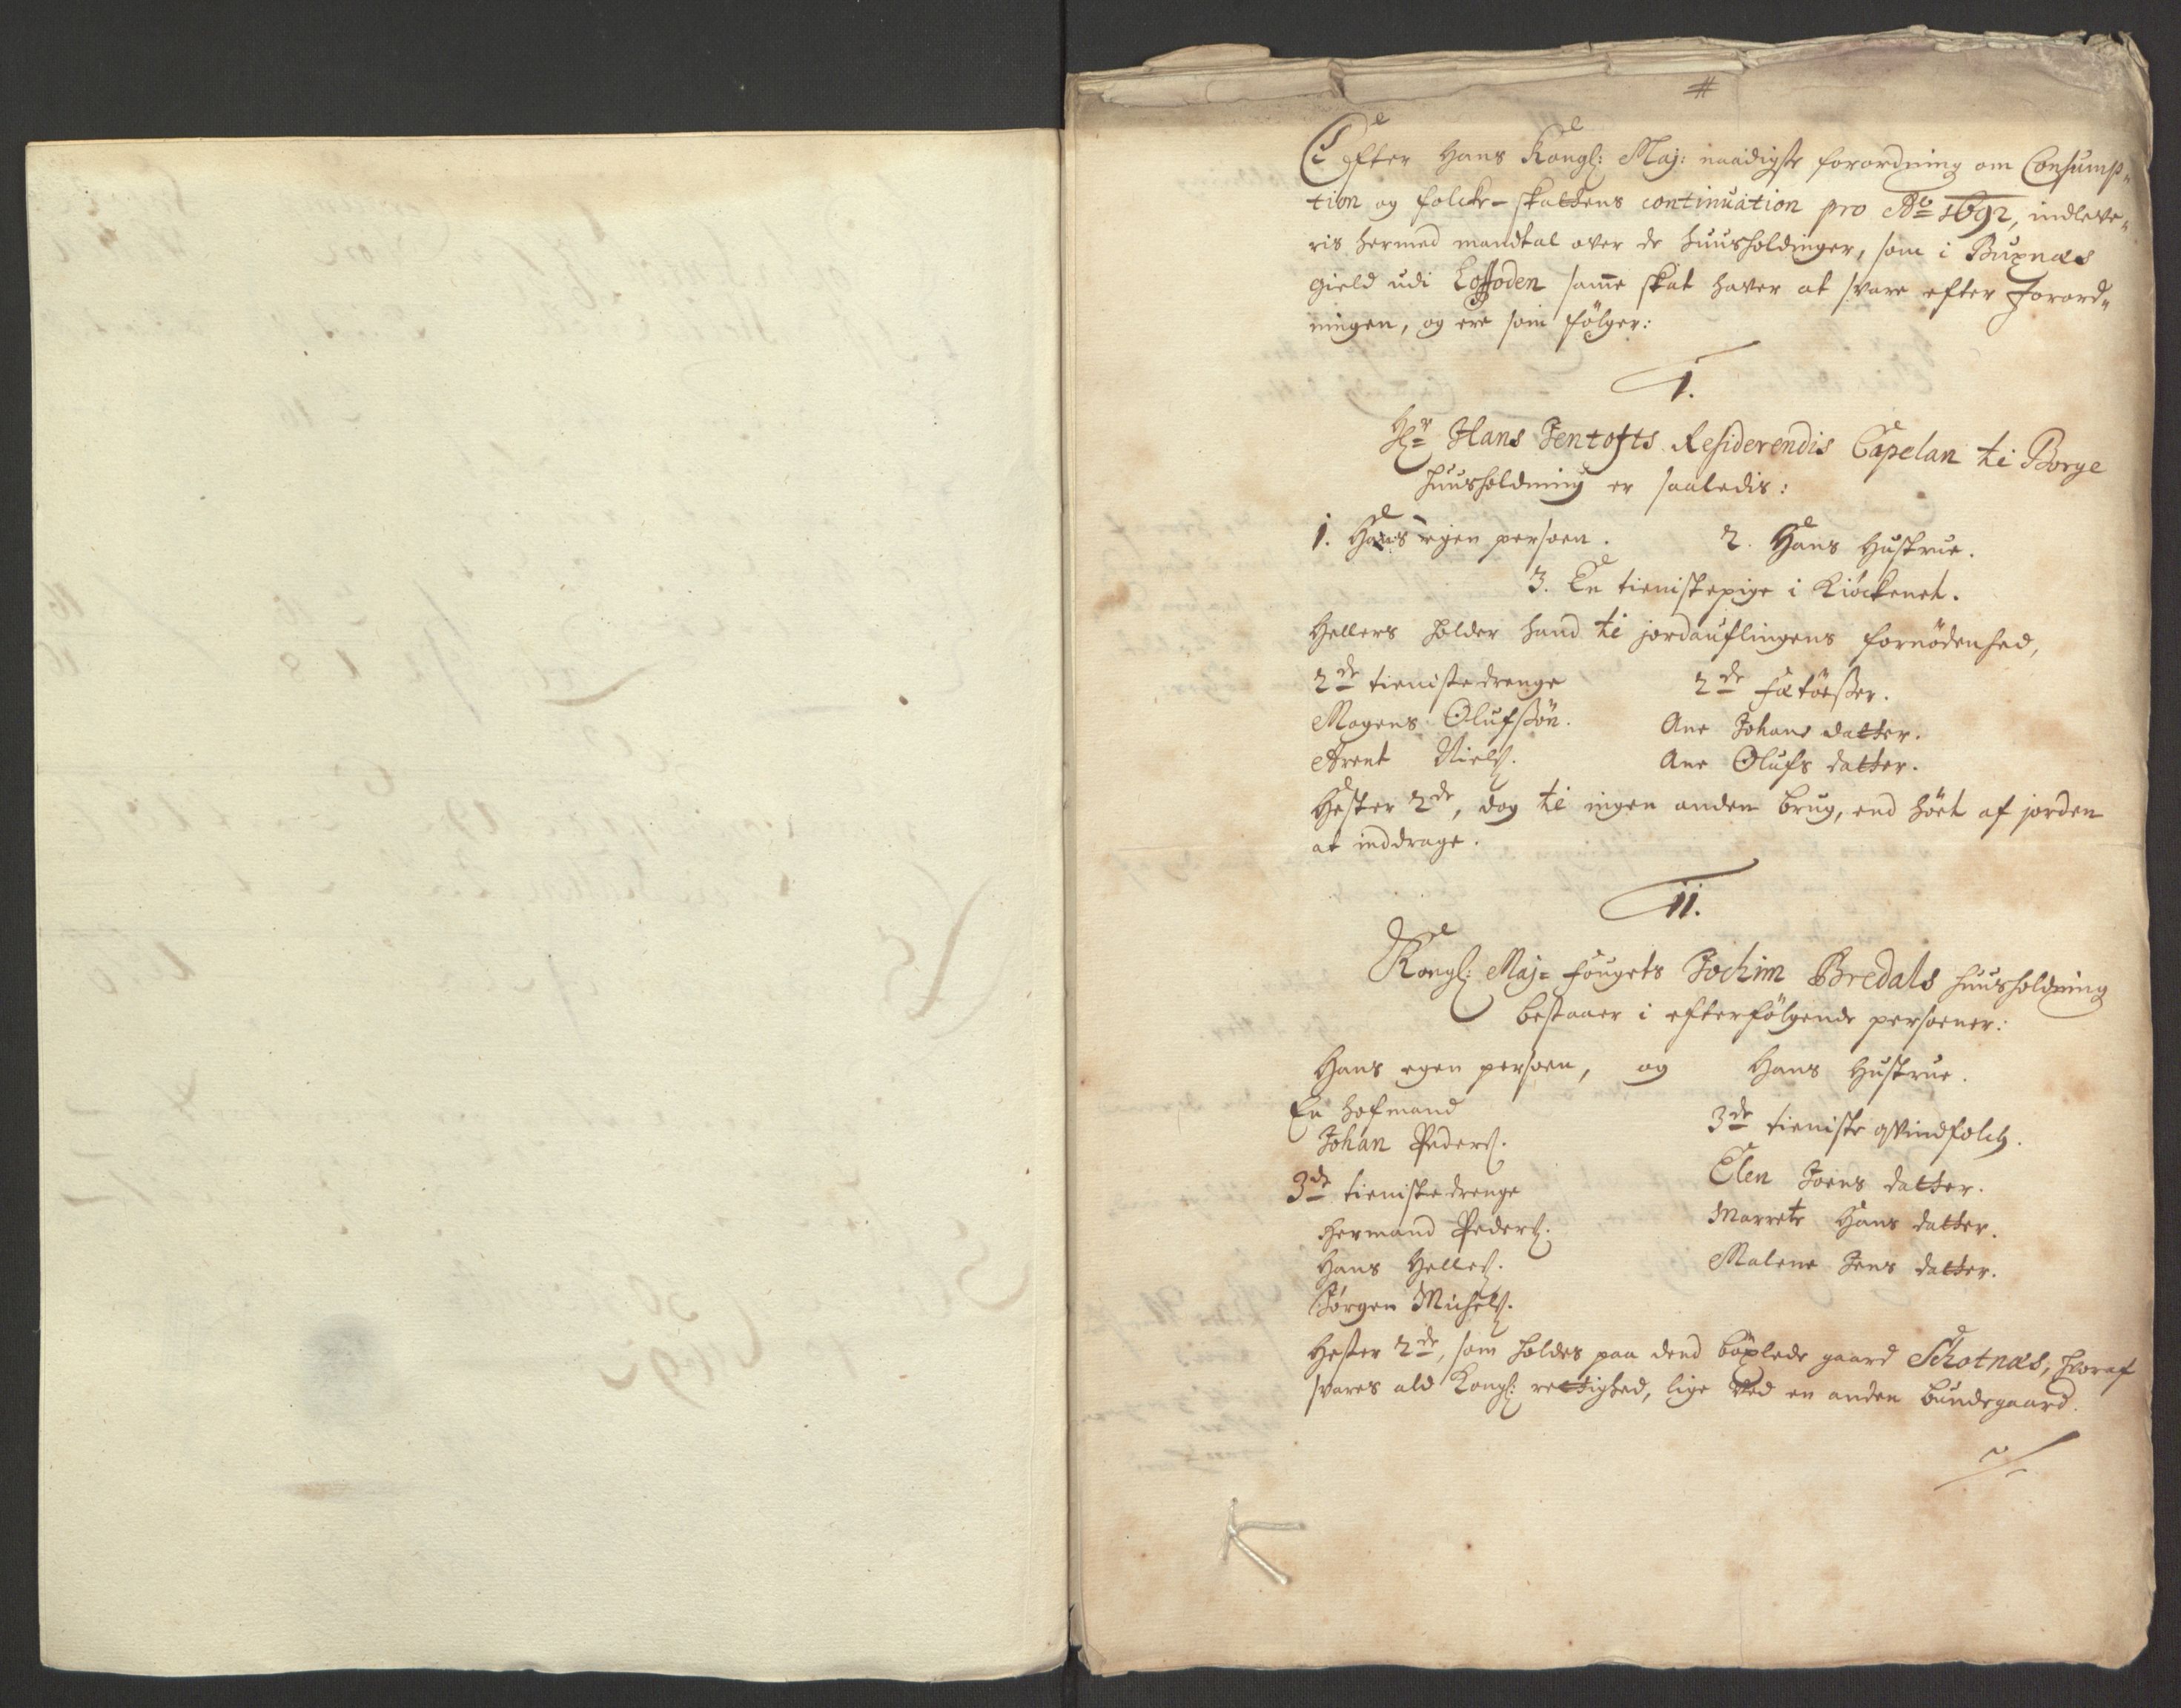 #
Efter Hans Kongl: Maj: naadigste forordning om Consump„
tion og folcke-skattens continuation pro Ao 1692, indleve„
ris hermed mandtal over de huusholdinger, som i Buxnæs
gield udi Loffoden same skat haver at svare efter Forord„
ningen, og ere som fölger:
I.
Hr Hans Jentofts Residerendis Capelan til Borge
huusholdning er saaledis:
1. Hans egen persoen. 2. Hans Hustrue.
3. En tienistepige i Kiöckenet.
Hellers holder hand til jordauflingens fornödenhed,
2de tienistedrenge 2de fætöesser.
Mogens Olufsön. Ane Johans datter.
Arent Niels. Ane Olufs datter.
Hester 2de, dog til ingen anden brug, end höet af jorden
at inddrage.
II.
Kongl: Maj= fougets Jochim Bredals huusholdning
bestaaer i efterfölgende persoener:
Hans egen persoen, og Hans Hustrue.
En hofmand 3de tieniste qvindfolch.
Johan Peders. Elen Joens datter.
3de tienistedrenge Marrete Hans datter.
Hermand Peders. Malene Jens datter.
Hans Helles.
Jörgen Michels.
Hester 2de, som holdes paa dend böxlede gaard Schotnæs, hvoraf
svares ald Kongl: rettighed, lige ved en anden bundegaard.